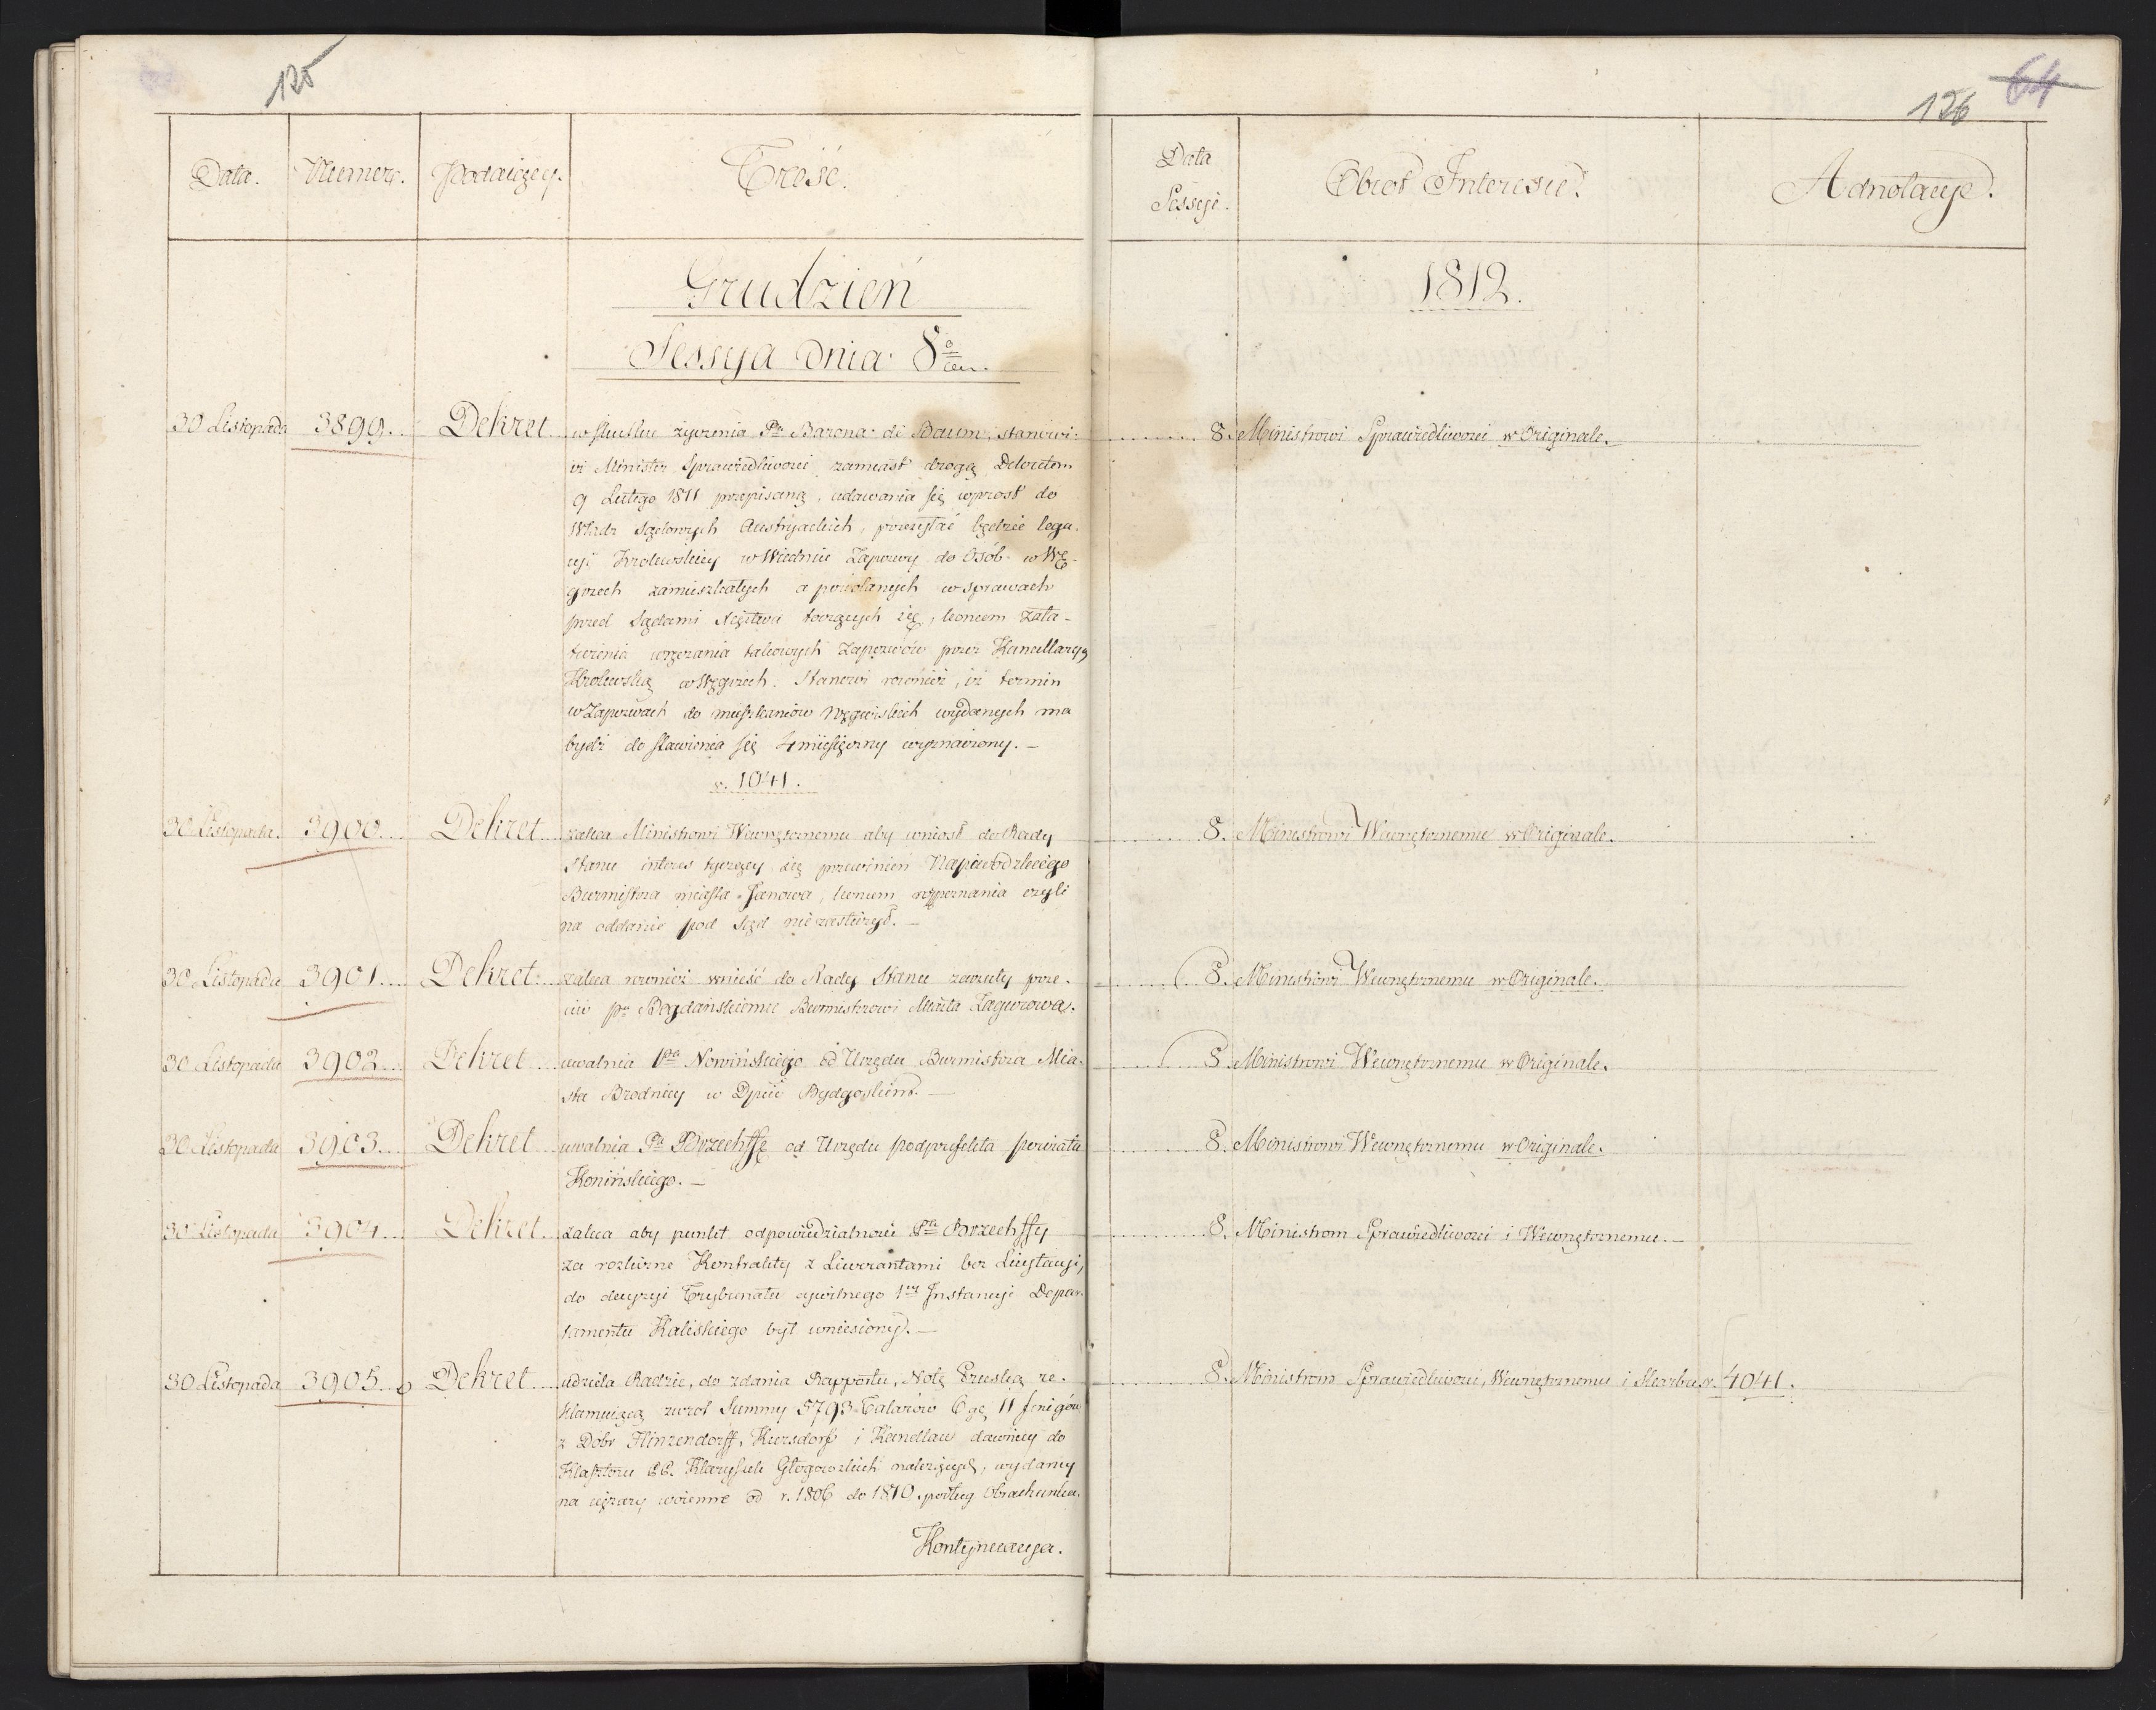 125
126 64
Data. Numer. Podaiący. Treść.
Data Sessyi. Obrót Interesu. Adnotacye.
Grudzień
1812.
Sessya dnia 8o
30 Listopada 3899. Dekret w skutku życzenia Pa Barona de Baum, stanowi:
wi Minister Sprawiedliwości zamiast drogą Dekretem
9 Lutego 1811 przepisaną, udawania się wprost do
Władz Sądowych Austryackich, przesyłać będzie lega-
cyi Krolewskiey w Wiedniu Zapozwy do Osób w Wę-
grzech zamieszkałych a powołanych w sprawach
przed Sądami Xięstwa toczących się, końcem zała-
twienia wręczania takowych Zapozwów przez Kancellaryą
Krolewską w Węgrzech. Stanowi rownież, iż termin
w Zapozwach do mieszkańców Węgierskich wydanych ma
bydź do stawienia się 4 miesięczny wyznaczony. —
v. 1041.
8. Ministrowi Sprawiedliwości w Originale.
30 Listopada. 3900. Dekret zaleca Ministrowi Wewnętrznemu aby wniosł do Rady
Stanu interes tyczący się przewinień Napiwodzkiego
Burmistrza miasta Janowa, końcem rozpoznania czyli
na oddanie pod Sąd nie zasłużył. —
8. Ministrowi Wewnętrznemu w Originale.
30 Listopada 3901. Dekret zaleca rownież wnieść do Rady Stanu zarzuty prze-
ciw po Bogdańskiemu Burmistrowi Miasta Zagurowa.
8. Ministrowi Wewnętrznemu w Originale.
30 Listopada 3902. Dekret uwalnia Pa Nowińskiego od Urzędu Burmistrza Mia-
sta Brodnicy w Dpcie Bydgoskim. —
8. Ministrowi Wewnętrznemu w Originale.
30 Listopada 3903. Dekret uwalnia Pa Brzechffę od Urzędu Podprefekta Powiatu
Konińskiego. —
8. Ministrowi Wewnętrznemu w Originale.
30 Listopada 3904. Dekret. zaleca aby punkt odpowiedzialności Pa Brzechffy
za rozliczne Kontrakty z Liwerantami bez Licytacyi,
do decyzyi Trybunału cywilnego 1ey Instancyi Depar-
tamentu Kaliskiego był wniesiony. —
8. Ministrom Sprawiedliwości i Wewnętrznemu. —
30 Listopada 3905. Dekret udziela Radzie, do zdania Rapportu, Notę Pruską re-
klamuiącą zwrot Summy 5793 Talarów 6 gę 11 fenigów
z Dobr Hinzendorff, Kursdorf i Kandlau dawniey do
Klasztoru PP. Klarysek Głogowskich należących, wydaney
na ciężary woienne od r. 1806 do 1810. podług Obrachunku.
8. Ministrom Sprawiedliwości, Wewnętrznemu i Skarbu. v. 4041.
Kontynuacya.